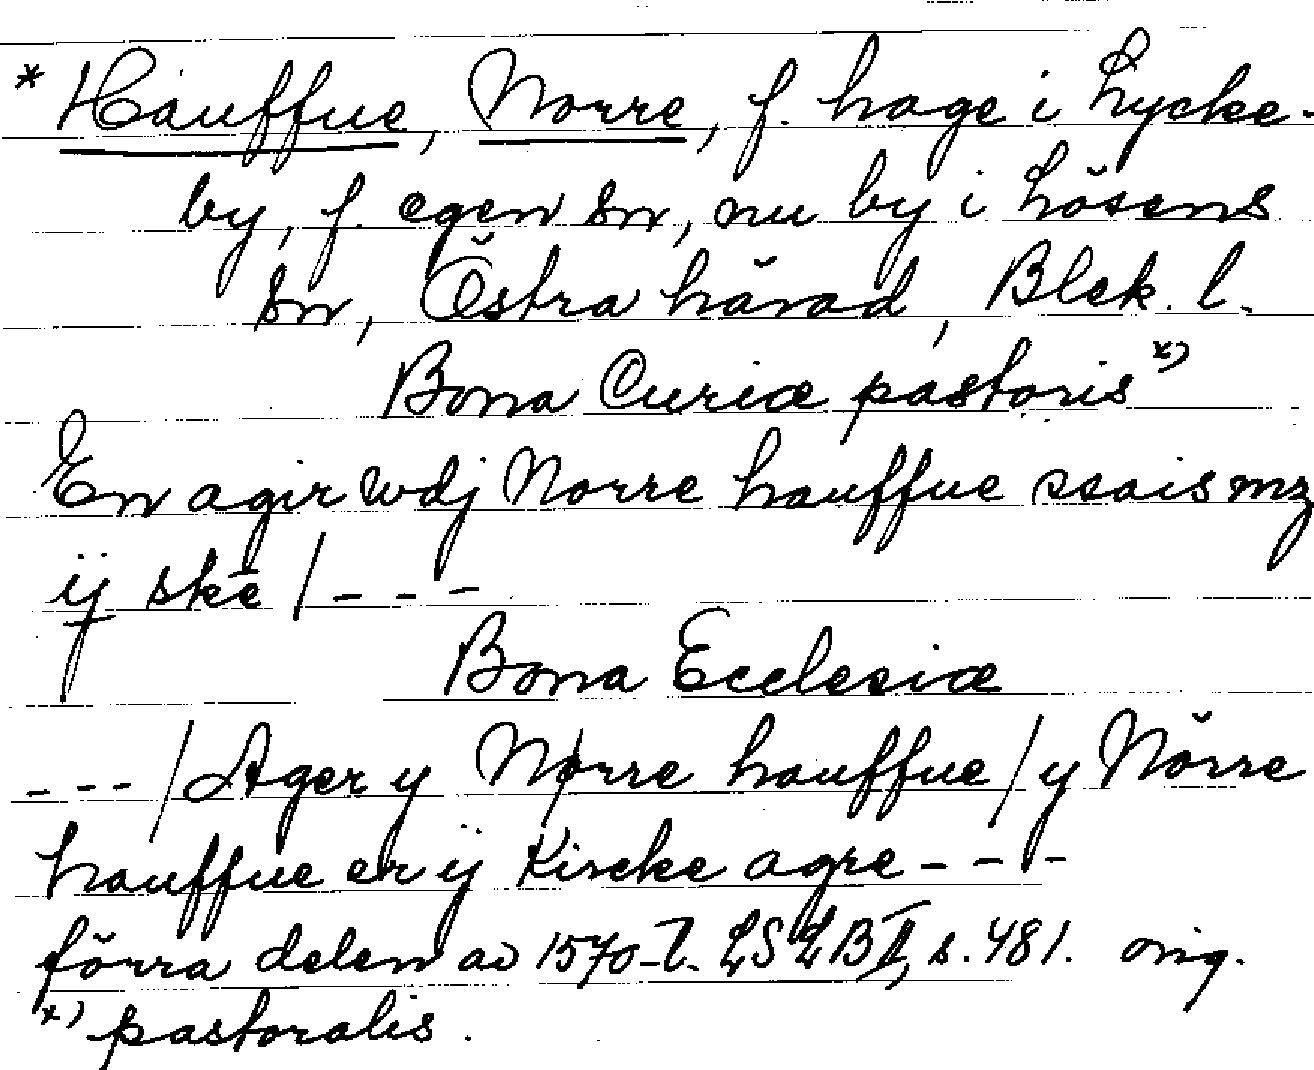 * Hauffue, Norre, f. hage i Lycke-
by, f. egen sn, nu by i Lösens
sn, Östra härad, Blek. l.
Bona Curiæ pastoris x)
En agir wdj Norre hauffue ssais mz
ij ske / - - -
Bona Ecclesiæ
- - - / Ager y Nørre hauffue / y Nörre
hauffue er ij Kircke agre - - -
förra delen av 1570-t. LSLB II, s. 481. orig.
x) pastoralis.